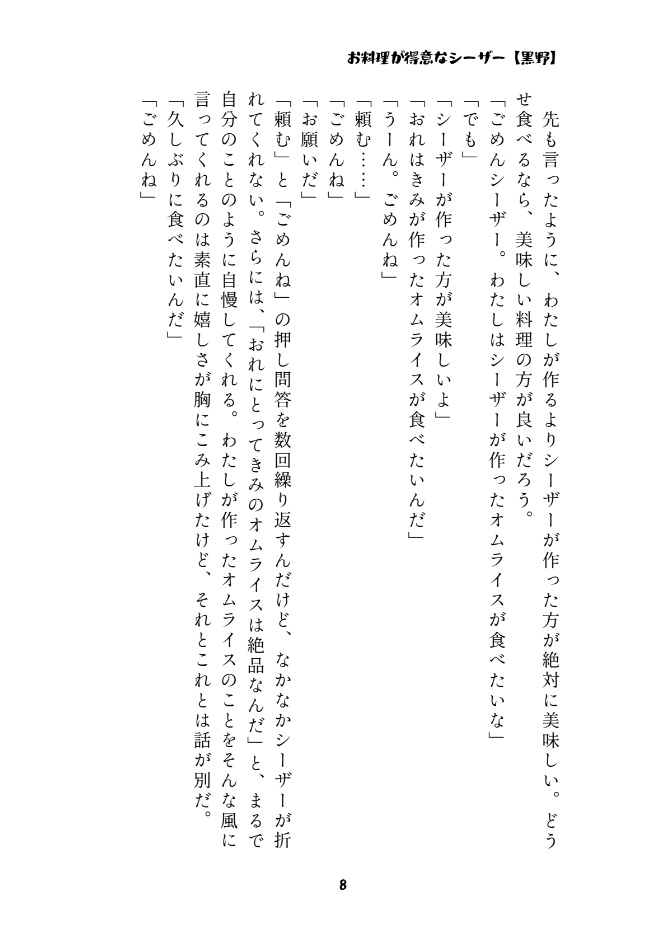 お料理が得意なシーザー【黒野】
　先も言ったように、わたしが作るよりシーザーが作った方が絶対に美味しい。どう
せ食べるなら、美味しい料理の方が良いだろう。
「ごめんシーザー。わたしはシーザーが作ったオムライスが食べたいな」
「でも」
「シーザーが作った方が美味しいよ」
「おれはきみが作ったオムライスが食べたいんだ」
「うーん。ごめんね」
「頼む……」
「ごめんね」
「お願いだ」
「頼む」と「ごめんね」の押し問答を数回繰り返すんだけど、なかなかシーザーが折
れてくれない。さらには、「おれにとってきみのオムライスは絶品なんだ」と、まるで
自分のことのように自慢してくれる。わたしが作ったオムライスのことをそんな風に
言ってくれるのは素直に嬉しさが胸にこみ上げたけど、それとこれとは話が別だ。
「久しぶりに食べたいんだ」
「ごめんね」
8